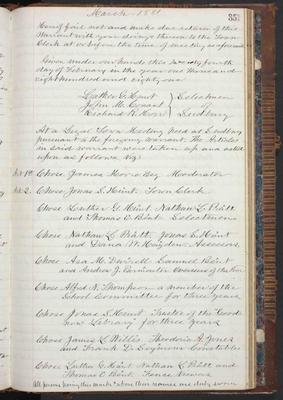 March 1881
351
Hereof fail not and make due return of this
Warrant with your doings thereon to the Town
Clerk at or before the time of meeting as aforesaid
Given under our hands this twenty fourth
day of February in the year one thousand
eight hundred and eighty one
Luther G. Hunt } Selectmen
John M. Conant } of
Richard R. Horr } Sudbury
At a Legal Town Meeting held at Sudbury
pursuant to the foregoing Warrant. The Articles
in said warrant were taken up and acted
upon as follows Viz:
Art 1st Chose James Moore Esq Moderator
Art 2. Chose Jonas S. Hunt Town Clerk
Chose Luther G. Hunt Nathan L. Pratt
and Thomas C. Bent Selectmen
Chose Nathan L. Pratt, Jonas S. Hunt
and Dana W. Hayden Assessors
Chose Asa M. Dwinell Samuel Bent
and Andrew J. Carpenter Overseers of the Poor
Chose Alfred N. Thompson a member of the
School Committee for three years
Chose Jonas S. Hunt Trustee of the Goodnow Library for three years
Chose James L. Willis Theodoric A. Jones
and Frank D. Seymour Constables
Chose Luther G. Hunt Nathan L. Pratt and
Thomas C. Bent Fence Viewers
All persons having this mark + above their names are duly sworn